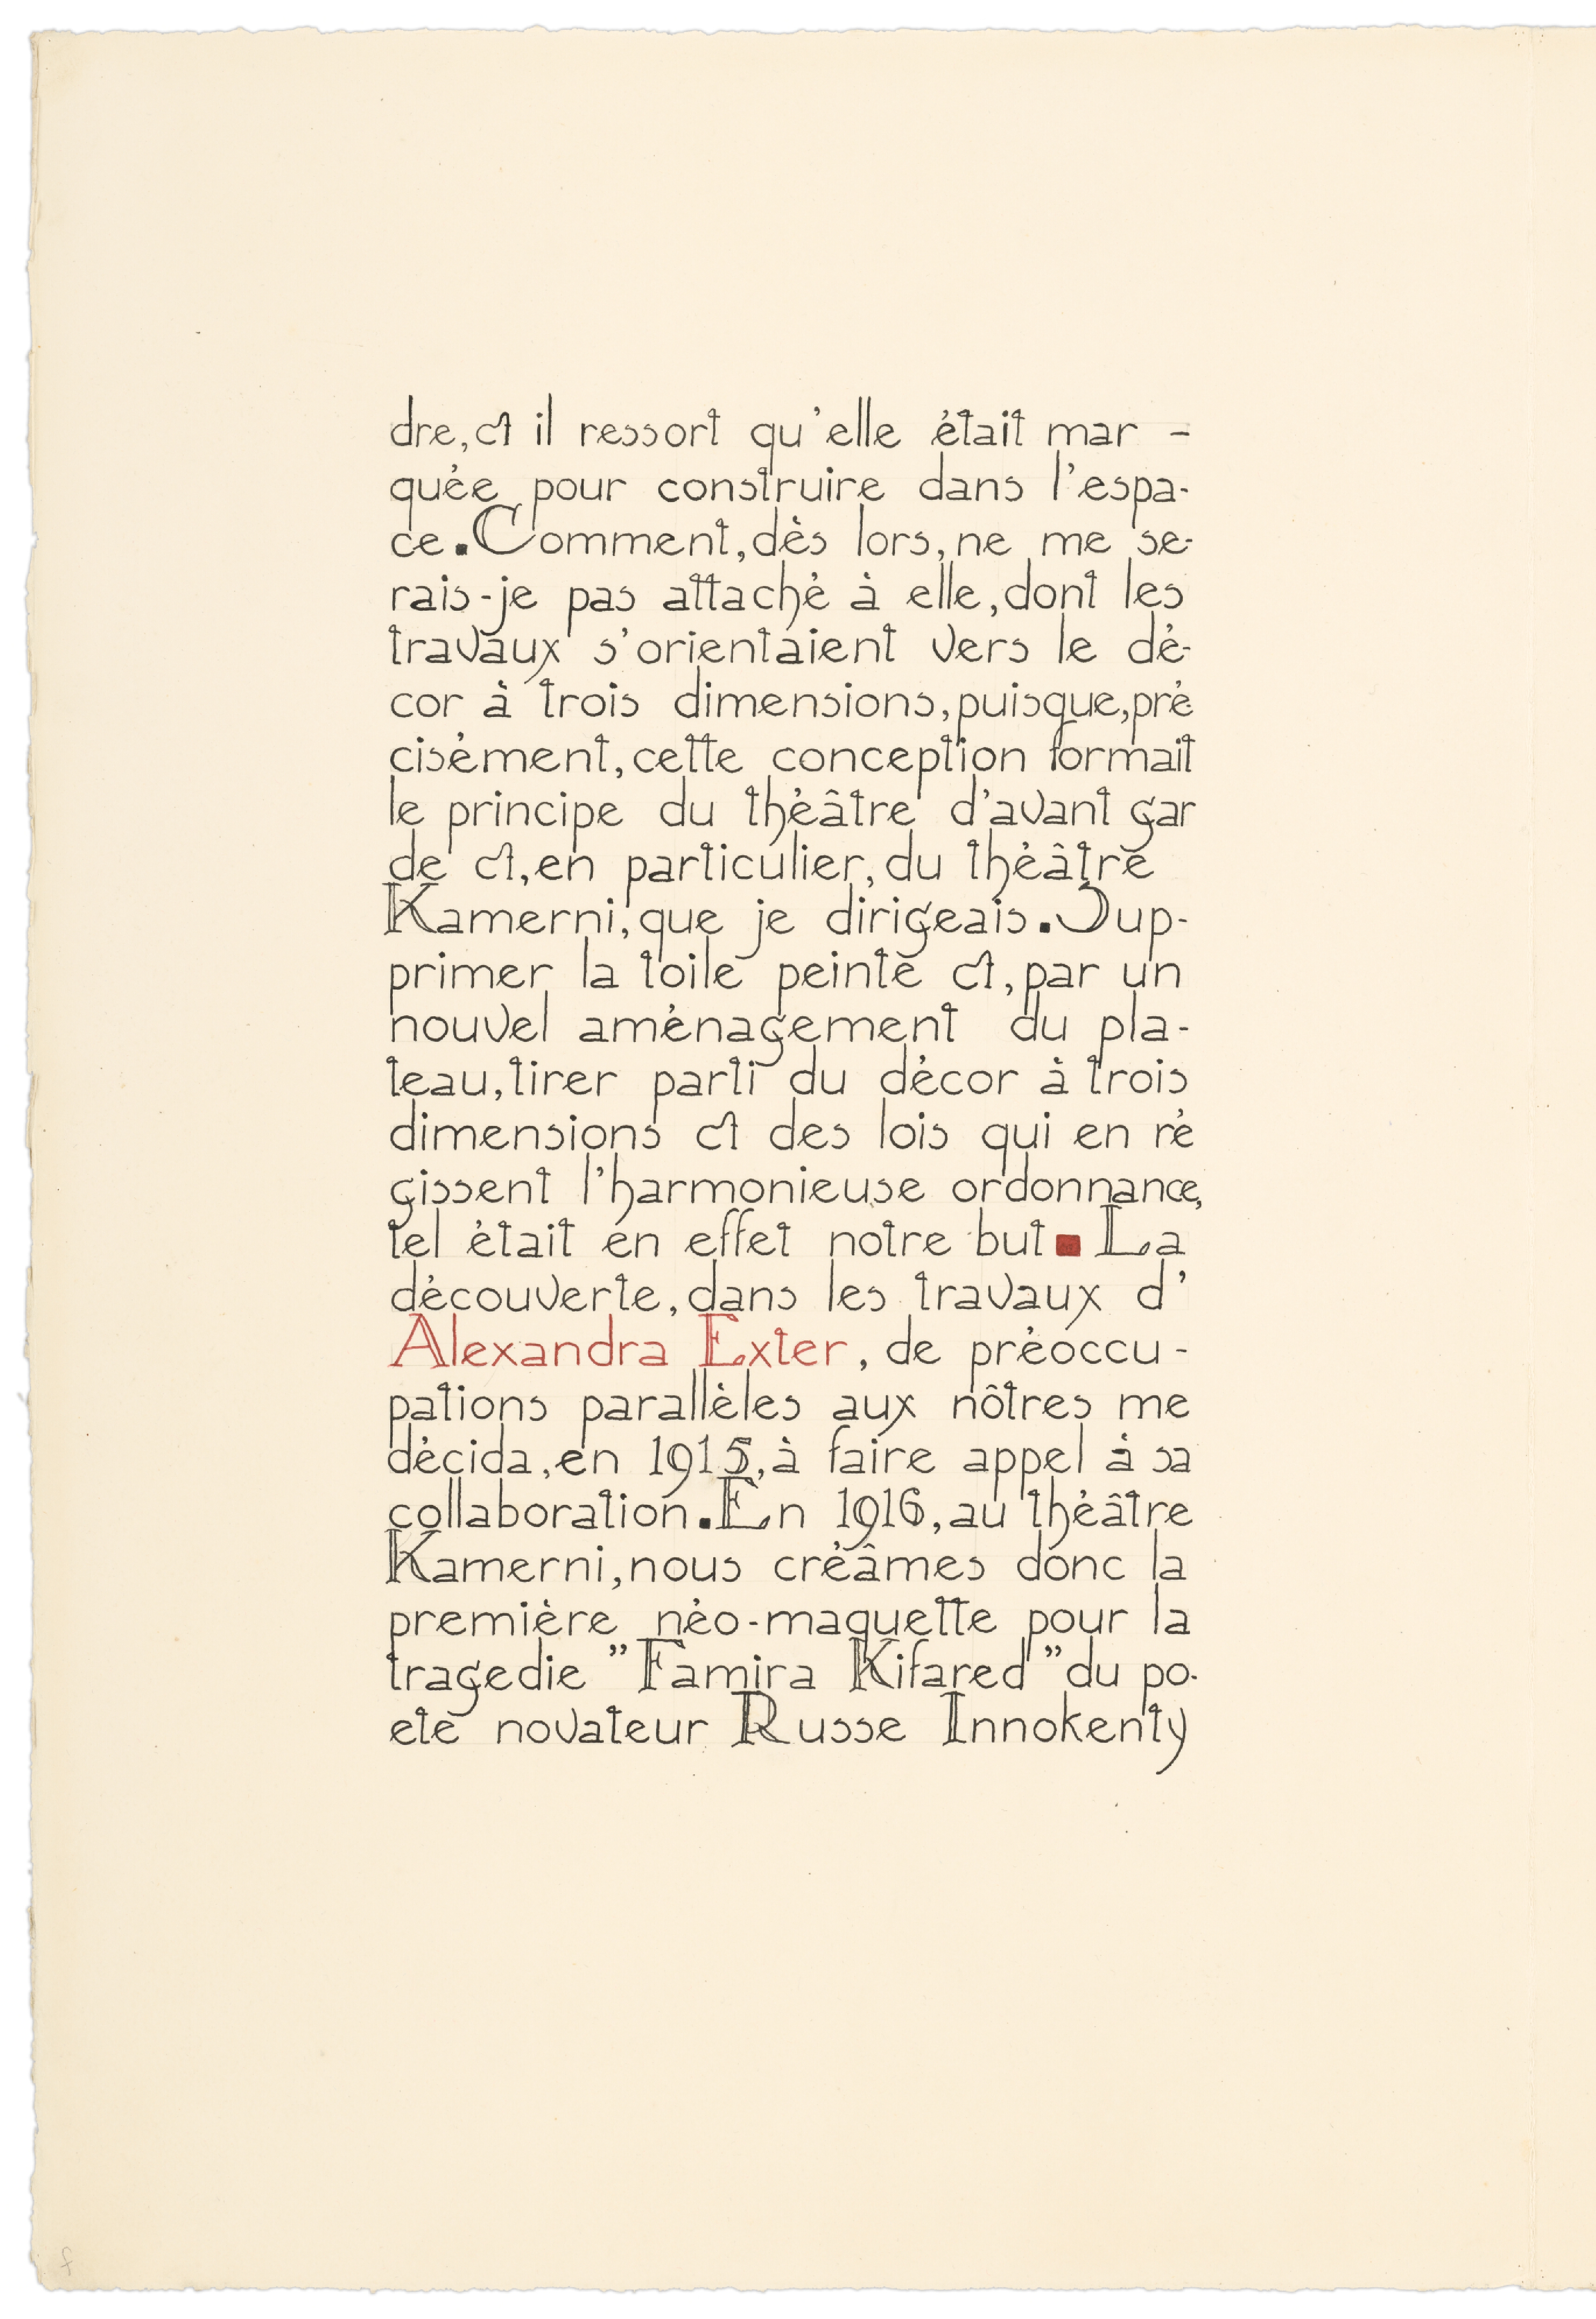 dre, et il ressort qu'elle était mar -
quée pour construire dans l'espa-
ce. Comment, dès lors, ne me se-
rais-je pas attaché à elle, dont les
travaux s'orientaient vers le dé-
cor à trois dimensions, puisque, pré
cisément, cette conception formait
le principe du théâtre d'avant gar
de et, en particulier, du théâtre
Kamerni, que je dirigeais. Sup-
primer la toile peinte et, par un
nouvel aménagement du pla-
teau, tirer parti du décor à trois
dimensions et des lois qui en ré
gissent l'harmonieuse ordonnance,
tel était en effet notre but ■ La
découverte, dans les travaux d'
Alexandra Exter, de préoccu-
pations parallèles aux nôtres me
décida, en 1915, à faire appel à sa
collaboration. En 1916, au théâtre
Kamerni, nous créâmes donc la
première néo-maquette pour la
tragedie "Famira Kifared" du po-
ete novateur Russe Innokenty